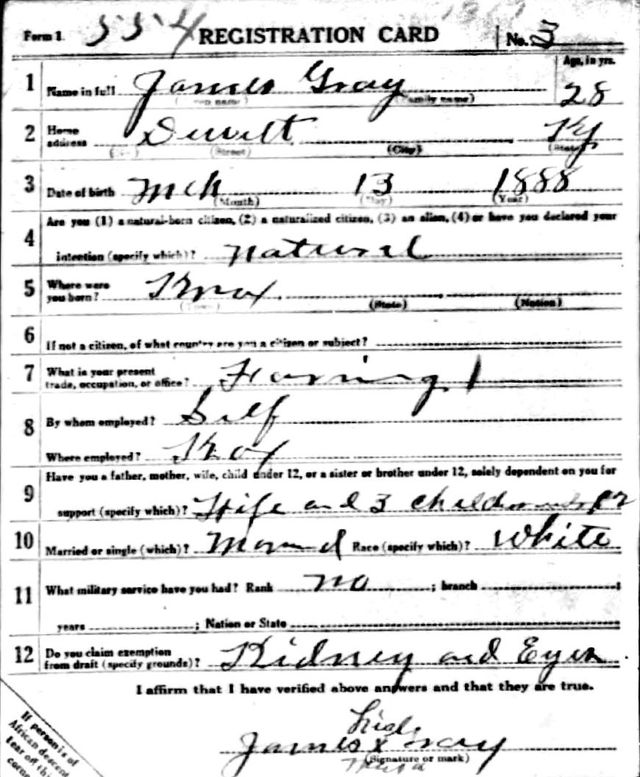 Form 1 554 REGISTRATION CARD No. 3
1 Name in full James Gray Age, in yrs. 28
(Given name) (Family name)
2 Home address Dewitt Ky
(No.) (Street) (City) (State)
3 Date of birth Mch 13 1888
(Month) (Day) (Year)
4 Are you (1) a natural-born citizen, (2) a naturalized citizen, (3) an alien, (4) or have you declared your
intention (specify which)? natural
5 Where were you born? Knox
(Town) (State) (Nation)
6 If not a citizen, of what country are you a citizen or subject?
7 What is your present trade, occupation, or office? Farming 1
8 By whom employed? Self
Where employed? Knox
9 Have you a father, mother, wife, child under 12, or a sister or brother under 12, solely dependent on you for
support (specify which)? Wife and 3 children under 12
10 Married or single (which)? Married Race (specify which)? White
11 What military service have you had? Rank no ; branch ;
years ; Nation or State
12 Do you claim exemption from draft (specify grounds)? Kidney and Eyes
I affirm that I have verified above answers and that they are true.
his
James x Gray
(Signature or mark)
If person is
of African descent
tear off this
corner